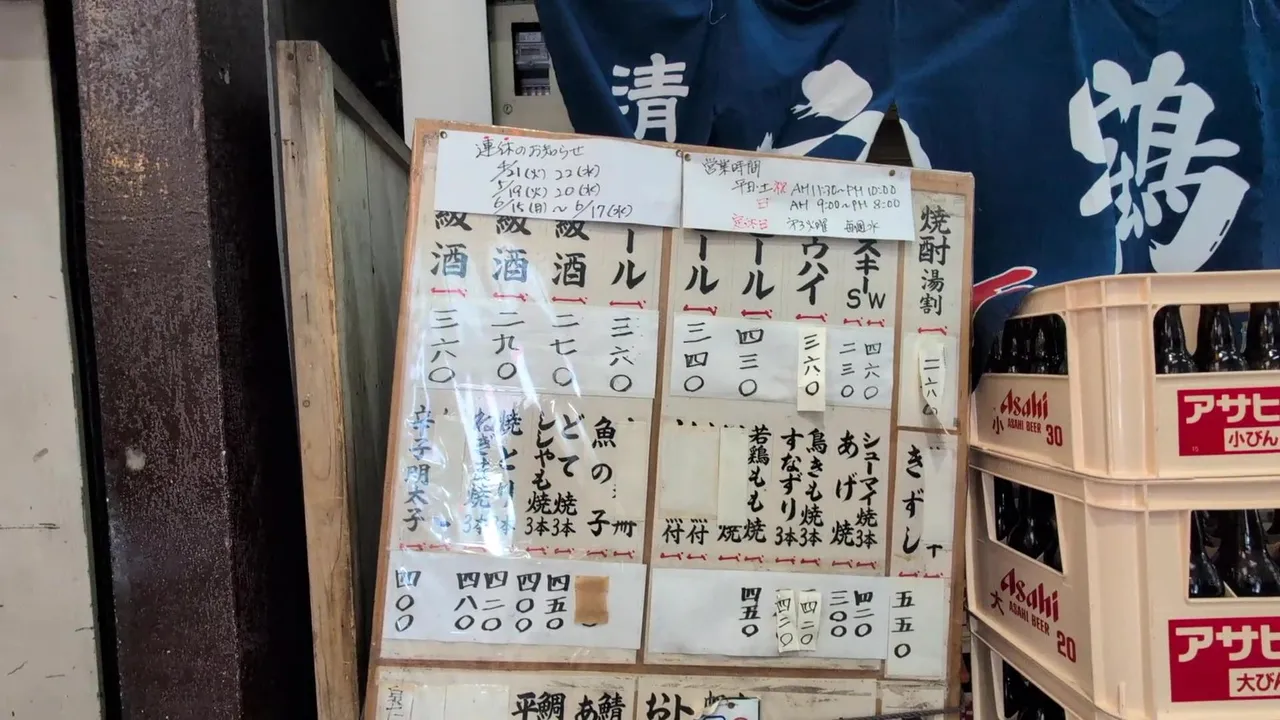 連休のお知らせ
4/21(火) 22(水)
5/19(火) 20(水)
6/15(月)~6/17(水)
営業時間
平日・土祝 AM11:30~PM10:00
日 AM 9:00~PM 8:00
定休日 第3火曜 毎週水
清
鶏
焼酎湯割
二六〇
スキー
SW
四六〇
二三〇
ウハイ
三六〇
ール
四三〇
ール
三四〇
ール
三六〇
級酒
二七〇
級酒
二九〇
級酒
三六〇
きずし
五五〇
シューマイ焼3本
四二〇
あげ焼
三〇〇
鳥きも焼3本
四二〇
すなずり3本
四二〇
若鶏もも焼
四五〇
焼
付
付
魚の子
どて焼3本
四五〇
ししゃも焼3本
四〇〇
焼とり
四二〇
ねぎま焼3本
四八〇
辛子明太子
四〇〇
鯖
あ
鯛
平
ト
お
Asahi
ASAHI BEER
小
30
アサヒ
小びん
Asahi
ASAHI BEER
大
20
アサヒ
大びん